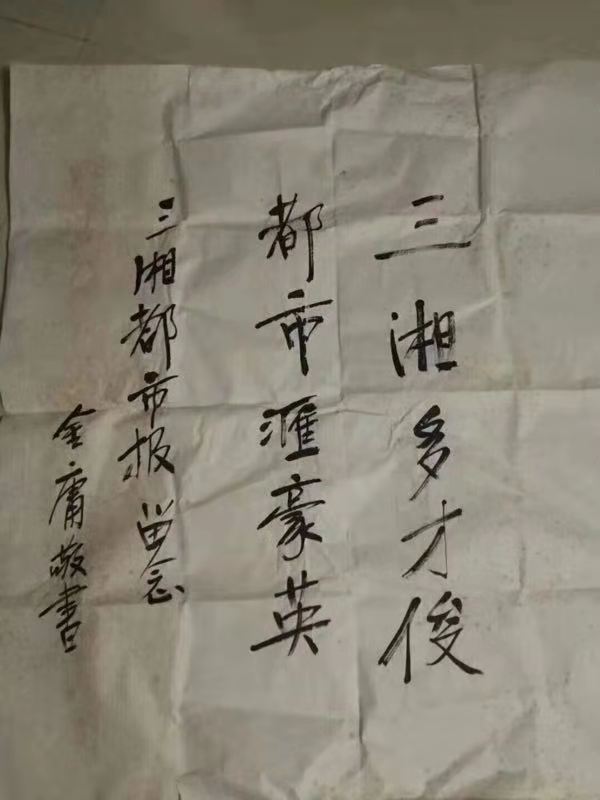 三湘多才俊
都市滙豪英
三湘都市报留念
金庸敬書